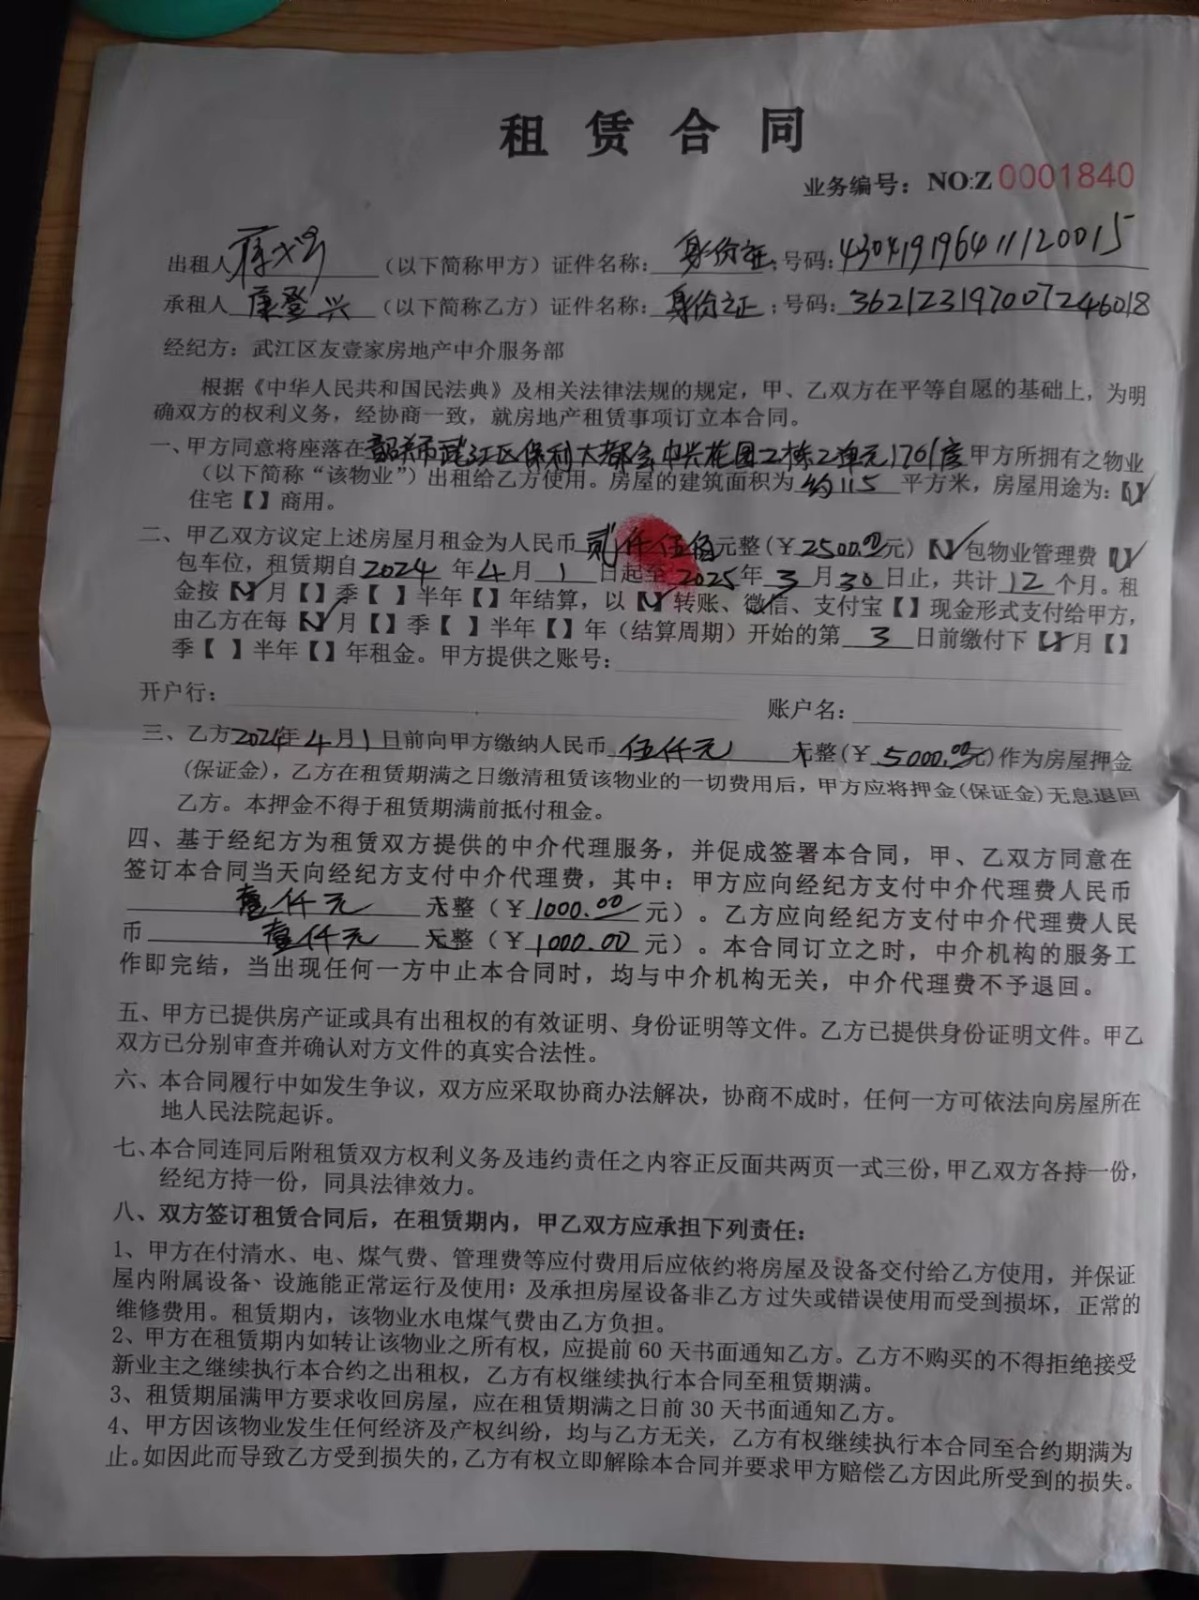 租赁合同
业务编号：NO:Z 0001840
出租人 （以下简称甲方）证件名称：身份证；号码：430419196411120015
承租人 康登兴 （以下简称乙方）证件名称：身份证；号码：362123197007246018
经纪方：武江区友壹家房地产中介服务部
根据《中华人民共和国民法典》及相关法律法规的规定，甲、乙双方在平等自愿的基础上，为明
确双方的权利义务，经协商一致，就房地产租赁事项订立本合同。
一、甲方同意将座落在韶关市武江区保利大都会中兴花园2栋2单元1701房甲方所拥有之物业
（以下简称“该物业”）出租给乙方使用。房屋的建筑面积为约115平方米，房屋用途为：【√】
住宅【 】商用。
二、甲乙双方议定上述房屋月租金为人民币贰仟伍佰元整(￥2500.00元)【√】包物业管理费【√】
包车位，租赁期自2024年4月1日起至2025年3月30日止，共计12个月。租
金按【√】月【 】季【 】半年【 】年结算，以【√】转账、微信、支付宝【 】现金形式支付给甲方，
由乙方在每【√】月【 】季【 】半年【 】年（结算周期）开始的第3日前缴付下【√】月【 】
季【 】半年【 】年租金。甲方提供之账号：
开户行： 账户名：
三、乙方2024年4月1日前向甲方缴纳人民币伍仟元 元整(￥5000.00元)作为房屋押金
(保证金)，乙方在租赁期满之日缴清租赁该物业的一切费用后，甲方应将押金(保证金)无息退回
乙方。本押金不得于租赁期满前抵付租金。
四、基于经纪方为租赁双方提供的中介代理服务，并促成签署本合同，甲、乙双方同意在
签订本合同当天向经纪方支付中介代理费，其中：甲方应向经纪方支付中介代理费人民币
壹仟元 元整（￥1000.00元）。乙方应向经纪方支付中介代理费人民
币 壹仟元 元整（￥1000.00元）。本合同订立之时，中介机构的服务工
作即完结，当出现任何一方中止本合同时，均与中介机构无关，中介代理费不予退回。
五、甲方已提供房产证或具有出租权的有效证明、身份证明等文件。乙方已提供身份证明文件。甲乙
双方已分别审查并确认对方文件的真实合法性。
六、本合同履行中如发生争议，双方应采取协商办法解决，协商不成时，任何一方可依法向房屋所在
地人民法院起诉。
七、本合同连同后附租赁双方权利义务及违约责任之内容正反面共两页一式三份，甲乙双方各持一份，
经纪方持一份，同具法律效力。
八、双方签订租赁合同后，在租赁期内，甲乙双方应承担下列责任：
1、甲方在付清水、电、煤气费、管理费等应付费用后应依约将房屋及设备交付给乙方使用，并保证
屋内附属设备、设施能正常运行及使用；及承担房屋设备非乙方过失或错误使用而受到损坏，正常的
维修费用。租赁期内，该物业水电煤气费由乙方负担。
2、甲方在租赁期内如转让该物业之所有权，应提前60天书面通知乙方。乙方不购买的不得拒绝接受
新业主之继续执行本合约之出租权，乙方有权继续执行本合同至租赁期满。
3、租赁期届满甲方要求收回房屋，应在租赁期满之日前30天书面通知乙方。
4、甲方因该物业发生任何经济及产权纠纷，均与乙方无关，乙方有权继续执行本合同至合约期满为
止。如因此而导致乙方受到损失的，乙方有权立即解除本合同并要求甲方赔偿乙方因此所受到的损失。